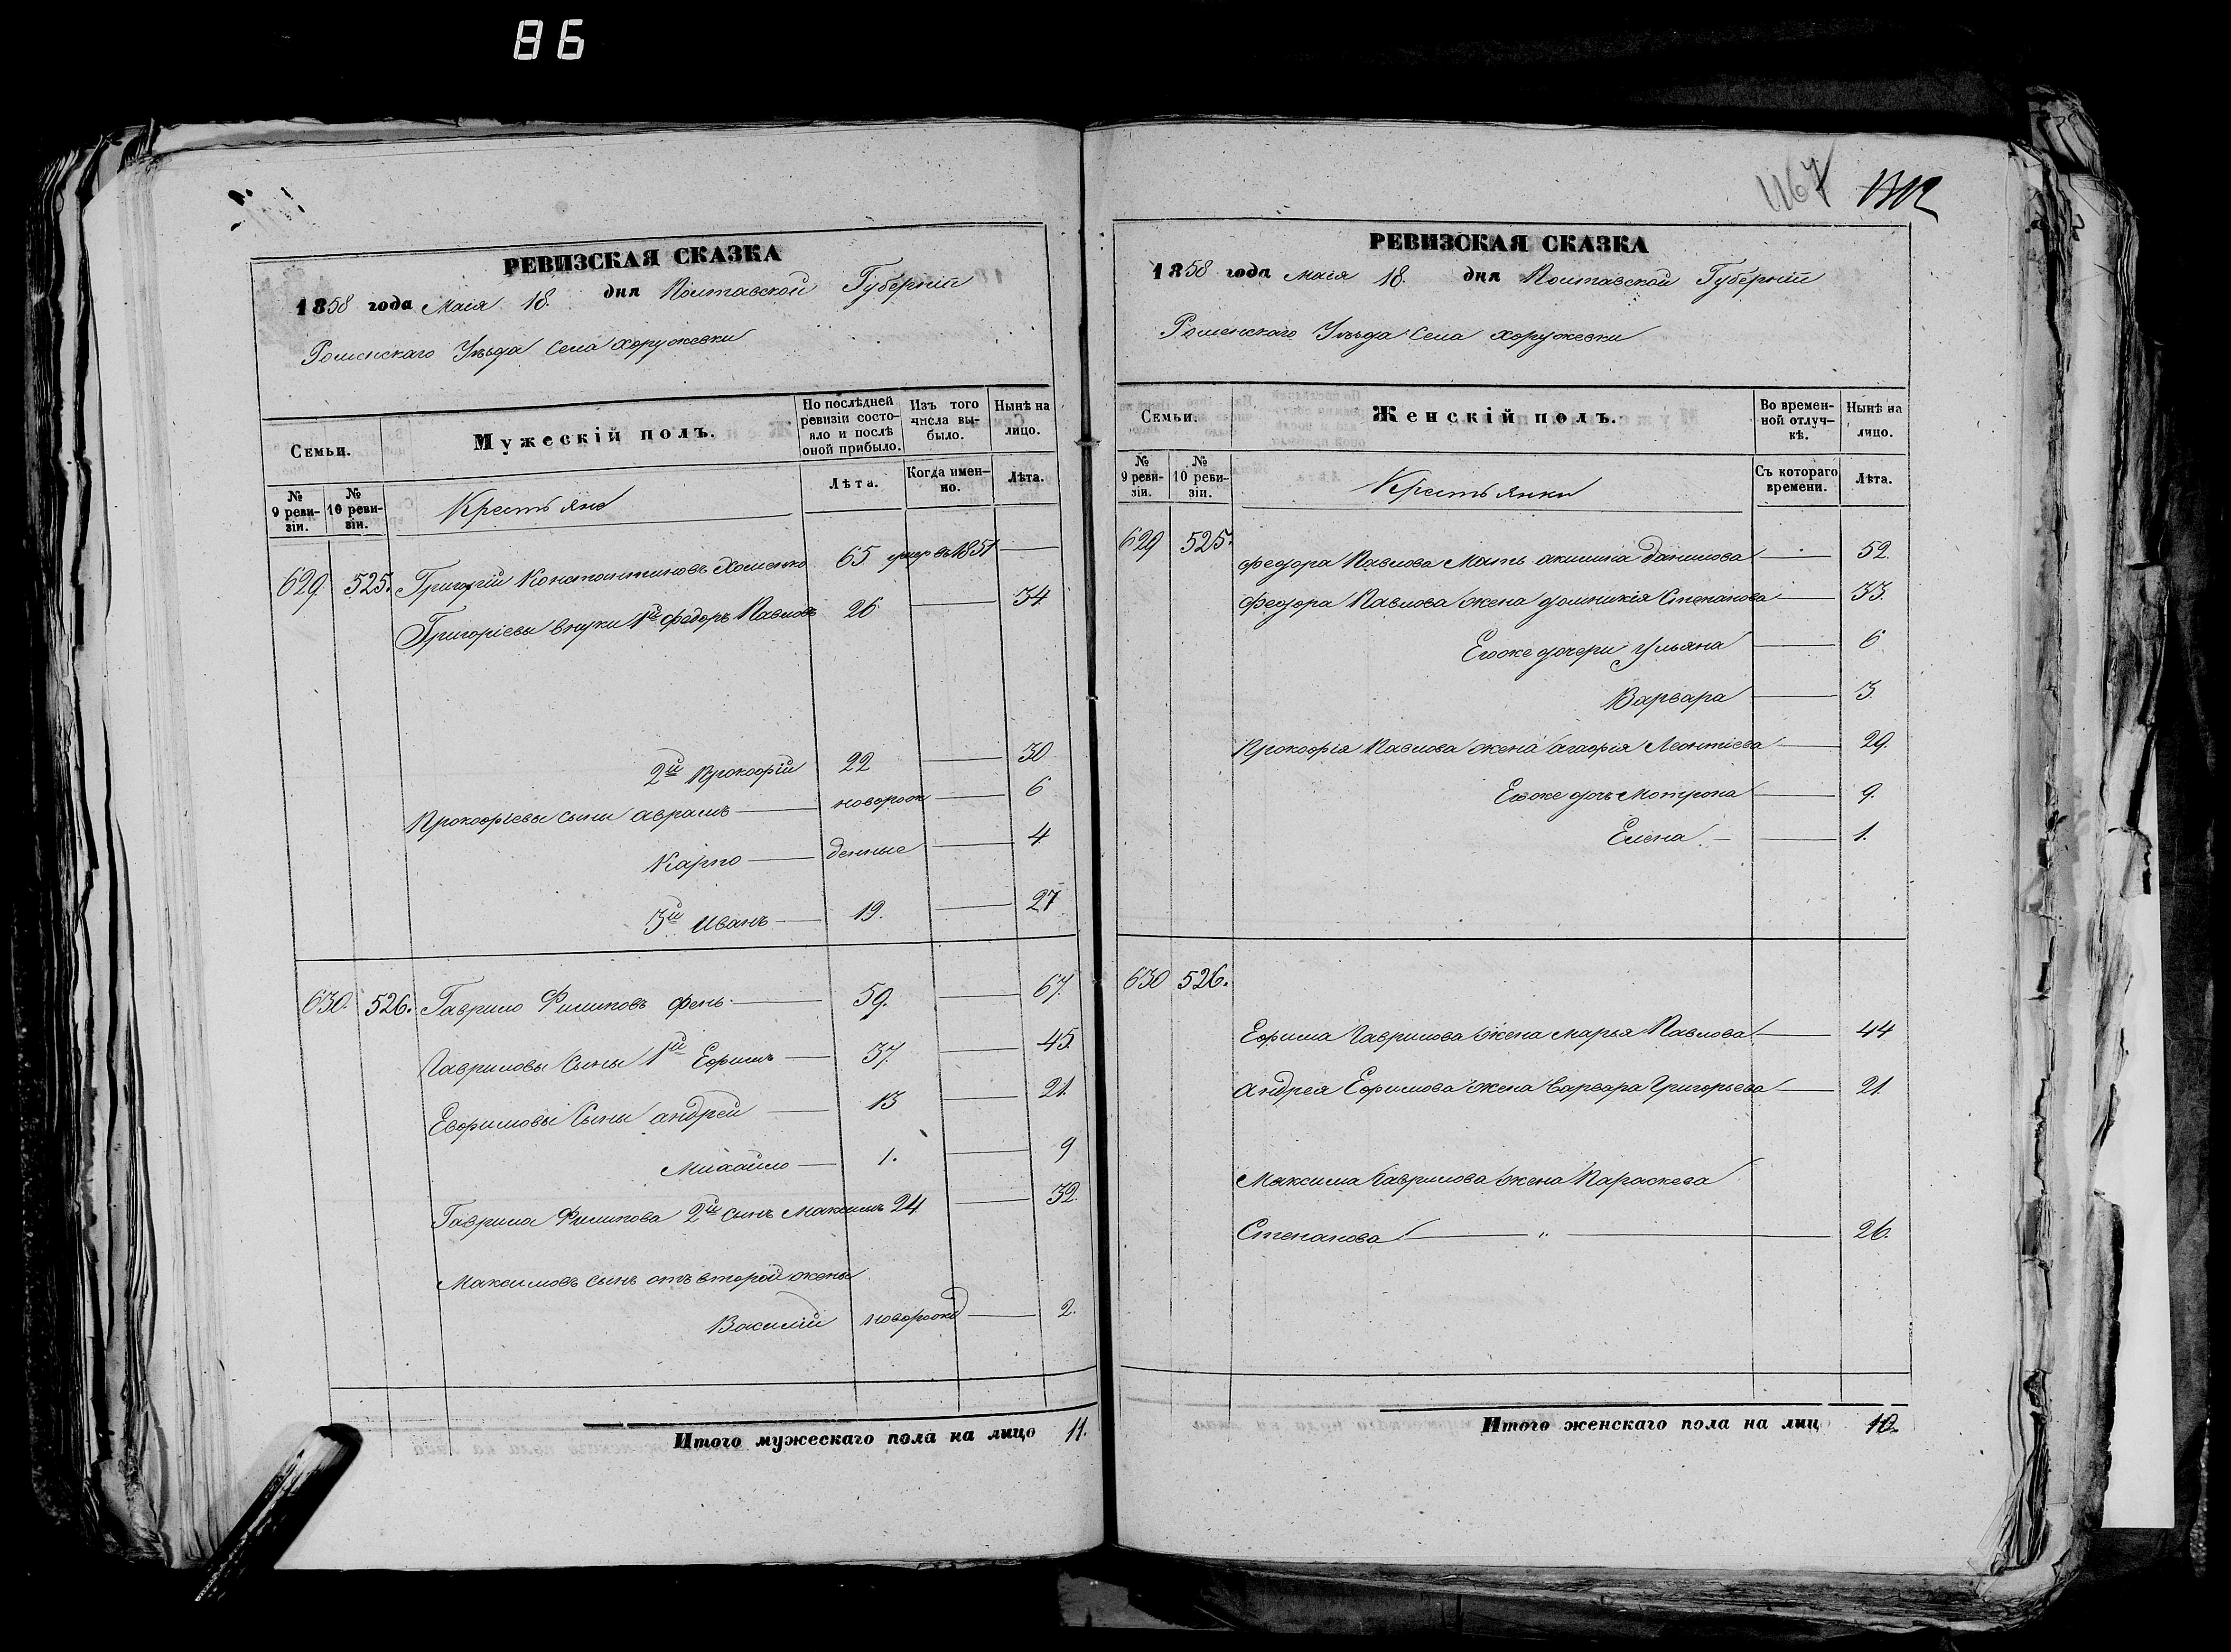 86
РЕВИЗСКАЯ СКАЗКА
1858 года Маія 18. дня Полтавской Губерніи
Роменскаго Уѣзда Села Хоружевки
Семьи.
Мужескій полъ.
По послѣдней ревизіи состояло и послѣ оной прибыло.
Изъ того числа выбыло.
Нынѣ на лицо.
№ 9 ревизіи.
№ 10 ревизіи.
Крестьяне
Лѣта.
Когда именно.
Лѣта.
629. 525. Григорій Константиновъ Хоменко 65 умер въ 1851
Григоріевы внуки 1й Федоръ Павловъ 26 34.
2й Прокофій 22 30
Прокофіевы сыны Аврамъ новорож 6
Карпо денные 4.
3й Иванъ 19. 27
630. 526. Гаврило Филиповъ Фень 59. 67.
Гавриловы Сыны 1й Ефимъ 37. 45.
Ефимовы Сыны Андрей 13 21.
Михайло 1. 9
Гаврила Филипова 2й сынъ Максимъ 24 32.
Максимовъ сынъ отъ второй жены
Василій новорожд 2.
Итого мужескаго пола на лицо 11.
1167
РЕВИЗСКАЯ СКАЗКА
1858 года Маія 18. дня Полтавской Губерніи
Роменскаго Уѣзда Села Хоружевки
Семьи.
Женскій полъ.
Во временной отлучкѣ.
Нынѣ на лицо.
№ 9 ревизіи.
№ 10 ревизіи.
Крестьянки
Съ котораго времени.
Лѣта.
629 525. Федора Павлова Мать Акилина Данилова 52.
Федора Павлова жена Домникія Степанова 33.
Егоже дочери Ульяна 6
Варвара 3.
Прокофія Павлова жена Агафія Леонтіева 29.
Егоже дочь Мотрона 9.
Елена 1.
630 526.
Ефима Гаврилова жена Марья Павлова 44
Андрея Ефимова жена Варвара Григорьева 21.
Максима Гаврилова жена Параскева
Степанова " 26.
Итого женскаго пола на лиц 10.